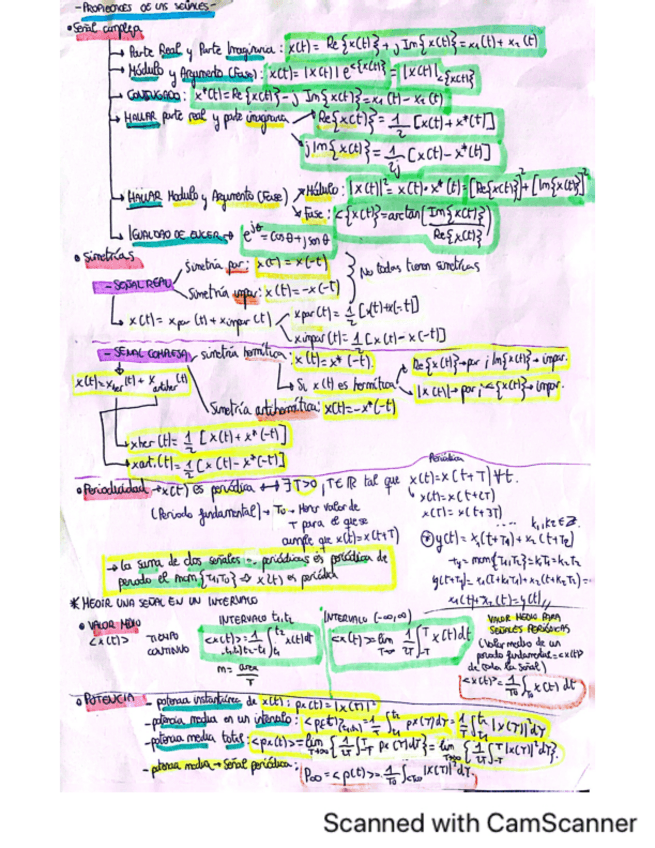 - PROPIEDADES DE LAS SEÑALES -
• Señal compleja
→ Parte Real y Parte Imaginaria: x(t) = Re{x(t)} + j Im{x(t)} = x₁(t) + x₂(t)
→ Módulo y Argumento (Fase): x(t) = |x(t)| e^{<{x(t)}} = |x(t)| ∠{x(t)}
→ CONJUGADO: x*(t) = Re{x(t)} - j Im{x(t)} = x₁(t) - x₂(t)
→ HALLAR parte real y parte imaginaria → Re{x(t)} = 1/2 [x(t) + x*(t)]
j Im{x(t)} = 1/2j [x(t) - x*(t)]
→ HALLAR Modulo y Argumento (Fase) → Módulo: |x(t)|² = x(t) · x*(t) = [Re{x(t)}]² + [Im{x(t)}]²
Fase: <{x(t)} = arctan(Im{x(t)} / Re{x(t)})
→ IGUALDAD DE EULER → e^{jθ} = cos θ + j sen θ
• Simetrías
- SEÑAL REAL
Simetría par: x(t) = x(-t)
Simetría impar: x(t) = -x(-t)
No todas tienen simetrías
→ x(t) = x par(t) + x impar(t)
x par(t) = 1/2 [x(t) + x(-t)]
x impar(t) = 1/2 [x(t) - x(-t)]
- SEÑAL COMPLEJA
simetría hermítica: x(t) = x*(-t).
→ Si x(t) es hermítica
Re{x(t)} → par ; Im{x(t)} → impar.
|x(t)| → par ; <{x(t)} → impar.
x(t) = x her(t) + x antiher(t)
Simetría antihermítica: x(t) = -x*(-t)
→ x her(t) = 1/2 [x(t) + x*(-t)]
→ x ant.(t) = 1/2 [x(t) - x*(-t)]
• Periodicidad → x(t) es periódica ↔ ∃ T>0, T∈ℝ tal que x(t) = x(t+T) ∀t.
Periódica
(Periodo fundamental) → T₀ → Menor valor de
T para el que se
cumple que x(t) = x(t+T)
x(t) = x(t+2T)
x(t) = x(t+3T)
.... k₁, k₂ ∈ Z.
⊛ y(t) = x₁(t+T₁) + x₂(t+T₂)
Ty = mcm{T₁,T₂} = k₁T₁ = k₂T₂
y(t+Ty) = x₁(t+k₁T₁) + x₂(t+k₂T₂) =
x₁(t) + x₂(t) = y(t) //
→ La suma de dos señales periódicas es periódica de
periodo el mcm{T₁,T₂} ⇒ x(t) es periódica
* MEDIR UNA SEÑAL EN UN INTERVALO
• VALOR MEDIO
<x(t)>
TIEMPO
CONTINUO
INTERVALO t₁,t₂
<x(t)> = 1/(t₂-t₁) ∫ x(t) dt
m = area / T
INTERVALO (-∞,∞)
<x(t)> = lim T→∞ 1/2T ∫ x(t) dt
VALOR MEDIO PARA
SEÑALES PERIÓDICAS
(Valor medio de un
periodo fundamental = <x(t)>
de toda la señal)
<x(t)> = 1/T₀ ∫T₀ x(t) dt
• POTENCIA
- potencia instantánea de x(t): px(t) = |x(t)|²
- potencia media en un intervalo: <px(t)>(t₁,t₂) = 1/T ∫ px(t) dt = 1/T ∫ |x(t)|² dt
- potencia media total: <px(t)> = lim T→∞ {1/2T ∫ px(t) dt} = lim T→∞ {1/2T ∫ |x(t)|² dt}.
- potencia media → Señal periódica: P∞ = <p(t)> = 1/T₀ ∫<T₀> |x(t)|² dt.
Scanned with CamScanner